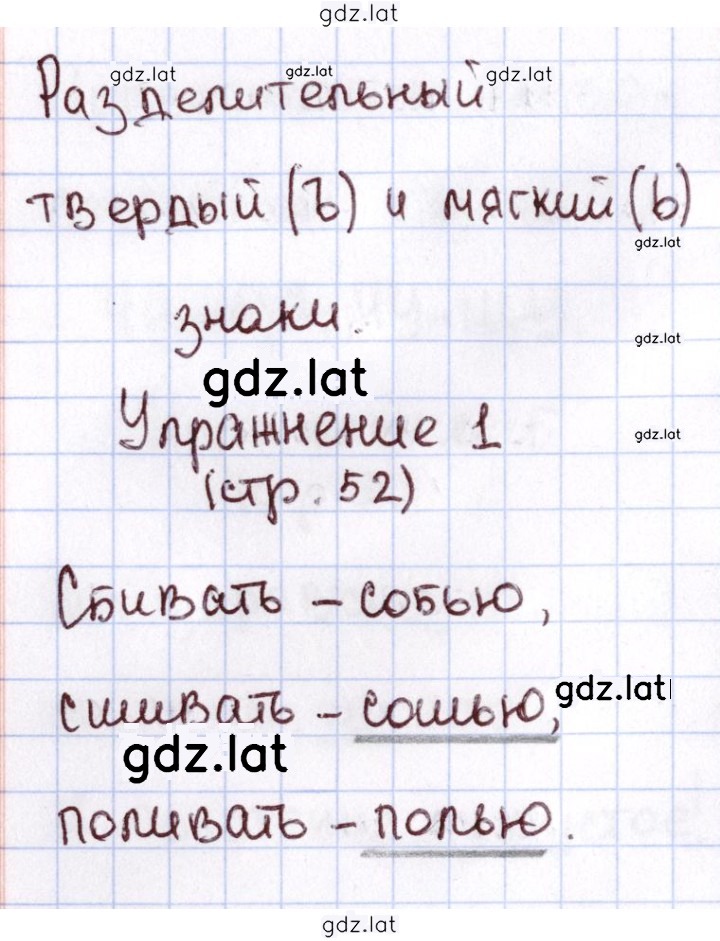 gdz.lat
gdz.lat gdz.lat gdz.lat
Разделительный
твердый (Ъ) и мягкий (ь)
gdz.lat
знаки.
gdz.lat
gdz.lat
Упражнение 1
gdz.lat
(стр. 52)
Сбивать – собью,
gdz.lat
сшивать – сошью,
gdz.lat
поливать – полью.
gdz.lat